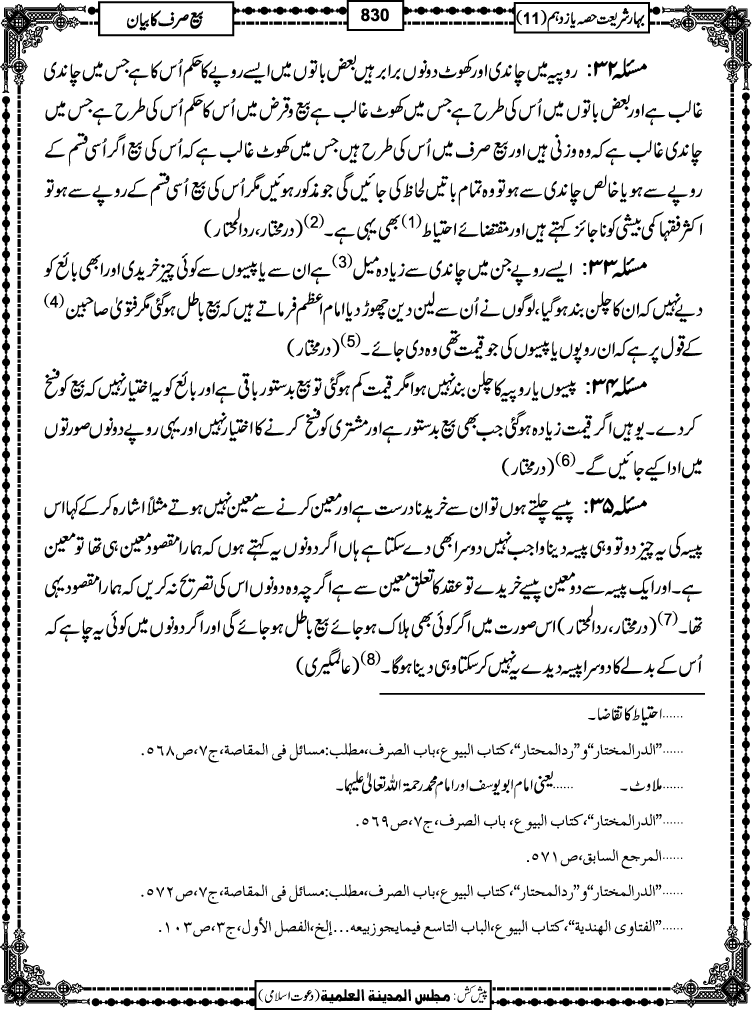 بہار شریعت حصہ یازدہم (11)
830
بیع صرف کا بیان
مسئلہ ۳۲: روپیہ میں چاندی اور کھوٹ دونوں برابر ہیں بعض باتوں میں ایسے روپے کا حکم اُس کا ہے جس میں چاندی
غالب ہے اور بعض باتوں میں اُس کی طرح ہے جس میں کھوٹ غالب ہے بیع و قرض میں اُس کا حکم اُس کی طرح ہے جس میں
چاندی غالب ہے کہ وہ وزنی ہیں اور بیع صرف میں اُس کی طرح ہیں جس میں کھوٹ غالب ہے کہ اُس کی بیع اگر اُسی قسم کے
روپے سے ہو یا خالص چاندی سے ہو تو وہ تمام باتیں لحاظ کی جائیں گی جو مذکور ہوئیں مگر اُس کی بیع اُسی قسم کے روپے سے ہو تو
اکثر فقہا کمی بیشی کو ناجائز کہتے ہیں اور مقتضائے احتیاط (1) بھی یہی ہے۔ (2) (درمختار، ردالمحتار)
مسئلہ ۳۳: ایسے روپے جن میں چاندی سے زیادہ میل (3) ہے ان سے یا پیسوں سے کوئی چیز خریدی اور ابھی بائع کو
دیے نہیں کہ ان کا چلن بند ہو گیا، لوگوں نے اُن سے لین دین چھوڑ دیا امام اعظم فرماتے ہیں کہ بیع باطل ہو گئی مگر فتویٰ صاحبین (4)
کے قول پر ہے کہ ان روپوں یا پیسوں کی جو قیمت تھی وہ دی جائے۔ (5) (درمختار)
مسئلہ ۳۴: پیسوں یا روپیہ کا چلن بند نہیں ہوا مگر قیمت کم ہو گئی تو بیع بدستور باقی ہے اور بائع کو یہ اختیار نہیں کہ بیع کو فسخ
کر دے۔ یوہیں اگر قیمت زیادہ ہو گئی جب بھی بیع بدستور ہے اور مشتری کو فسخ کرنے کا اختیار نہیں اور یہی روپے دونوں صورتوں
میں ادا کیے جائیں گے۔ (6) (درمختار)
مسئلہ ۳۵: پیسے چلتے ہوں تو ان سے خریدنا درست ہے اور معین کرنے سے معین نہیں ہوتے مثلاً اشارہ کر کے کہا اس
پیسہ کی یہ چیز دو تو وہی پیسہ دینا واجب نہیں دوسرا بھی دے سکتا ہے ہاں اگر دونوں یہ کہتے ہوں کہ ہمارا مقصود معین ہی تھا تو معین
ہے۔ اور ایک پیسہ سے دو معین پیسے خریدے تو عقد کا تعلق معین سے ہے اگرچہ وہ دونوں اس کی تصریح نہ کریں کہ ہمارا مقصود یہی
تھا۔ (7) (درمختار، ردالمحتار) اس صورت میں اگر کوئی بھی ہلاک ہو جائے بیع باطل ہو جائے گی اور اگر دونوں میں کوئی یہ چاہے کہ
اُس کے بدلے کا دوسرا پیسہ دیدے یہ نہیں کر سکتا وہی دینا ہوگا۔ (8) (عالمگیری)
......احتیاط کا تقاضا۔
......”الدرالمختار“و”ردالمحتار“، کتاب البیوع،باب الصرف،مطلب:مسائل فی المقاصة،ج٧،ص٥٦٨.
......ملاوٹ۔ ......یعنی امام ابو یوسف اور امام محمد رحمۃ اللہ تعالیٰ علیہما۔
......”الدرالمختار“، کتاب البیوع، باب الصرف،ج٧،ص٥٦٩.
......المرجع السابق،ص٥٧١.
......”الدرالمختار“و”ردالمحتار“، کتاب البیوع،باب الصرف،مطلب:مسائل فی المقاصة،ج٧،ص٥٧٢.
......”الفتاوی الهندیة“، کتاب البیوع،الباب التاسع فیمایجوزبیعه...إلخ،الفصل الأول،ج٣،ص١٠٣.
پیش کش: مجلس المدينة العلمية (دعوت اسلامی)